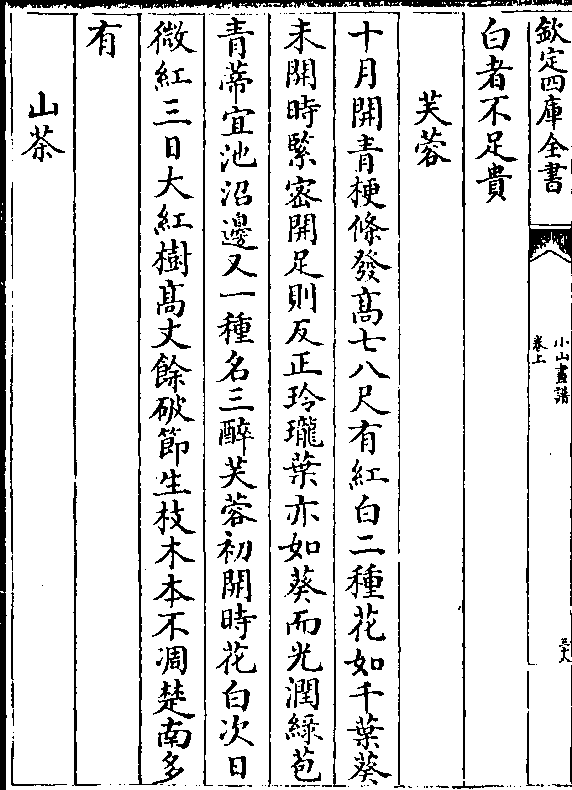 欽定四庫全書
小山畫譜
卷上
白者不足貴
芙蓉
十月開青梗條發高七八尺有紅白二種花如千葉葵
未開時緊密開足則反正玲瓏葉亦如葵而光潤綠苞
青蒂宜池沼邊又一種名三醉芙蓉初開時花白次日
微紅三日大紅樹高丈餘破節生枝木本不凋楚南多
有
山茶